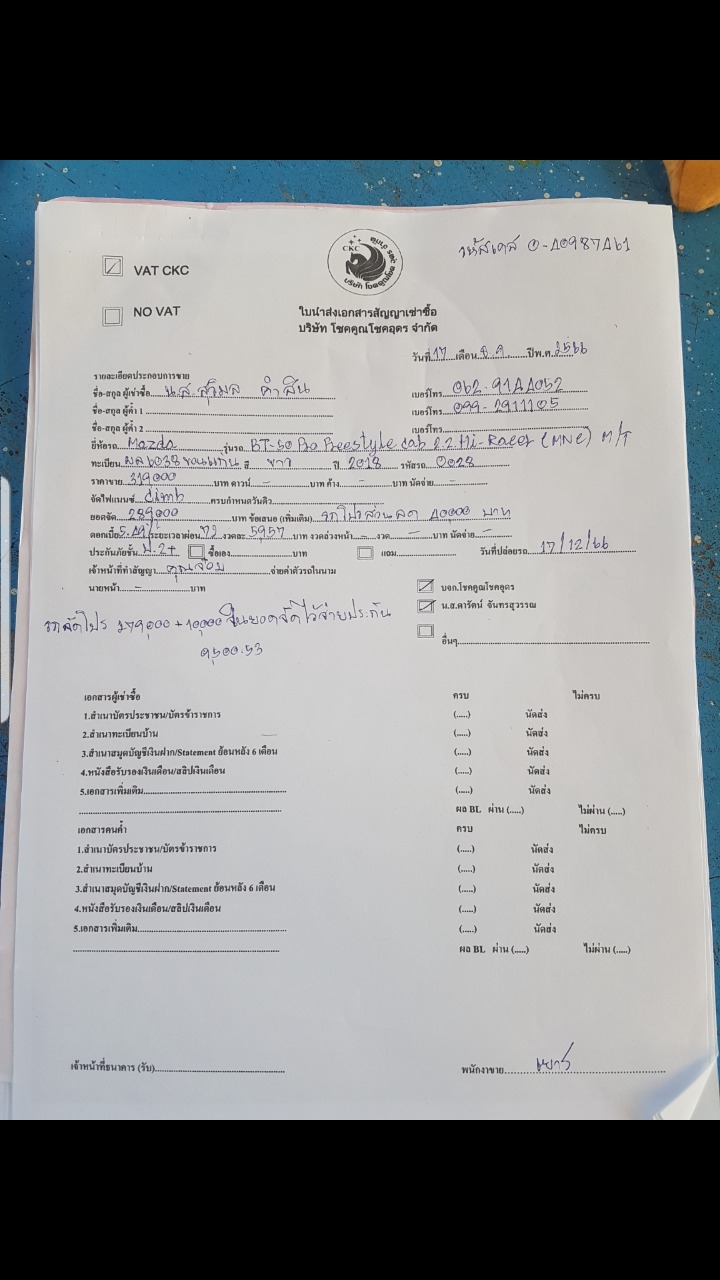 รหัสเคส 0-40987461
VAT CKC
CKC
NO VAT
ใบนำส่งเอกสารสัญญาเช่าซื้อ
บริษัท โชคคูณโชคอุดร จำกัด
วันที่ 17 เดือน ธ.ค ปีพ.ศ. 2566
รายละเอียดประกอบการขาย
ชื่อ-สกุล ผู้เช่าซื้อ น.ส. สุวิมล คำสิน เบอร์โทร 062-9144052
ชื่อ-สกุล ผู้ค้ำ 1 เบอร์โทร 099-2911105
ชื่อ-สกุล ผู้ค้ำ 2 เบอร์โทร
ยี่ห้อรถ Mazda รุ่นรถ BT-50 Pro Freestyle cab 2.2 Hi-Racer (MNC) M/T
ทะเบียน 6038 ขอนแก่น สี ขาว ปี 2018 รหัสรถ 0028
ราคาขาย 319,000 บาท ดาวน์ - บาท ค้าง - บาท นัดจ่าย -
จัดไฟแนนซ์ climb ครบกำหนดวันดิว
ยอดจัด 289,000 บาท ข้อเสนอ (เพิ่มเติม) รถโปรส่วนลด 40,000 บาท
ดอกเบี้ย 5.49 ระยะเวลาผ่อน 72 งวดละ 5,957 บาท งวดล่วงหน้า - งวด - บาท นัดจ่าย -
ประกันภัยชั้น ป.2+ ซื้อเอง บาท แถม วันที่ปล่อยรถ 17/12/66
เจ้าหน้าที่ทำสัญญา คุณส้ม จ่ายค่าตัวรถในนาม
นายหน้า - บาท
บจก.โชคคูณโชคอุดร
น.ส.ดารัตน์ จันทรสุวรรณ
อื่นๆ
รถจัดโปร 279,000 + 10,000 ในยอดจัดไว้จ่ายประกัน
9,500.53
เอกสารผู้เช่าซื้อ ครบ ไม่ครบ
1.สำเนาบัตรประชาชน/บัตรข้าราชการ (.....) นัดส่ง
2.สำเนาทะเบียนบ้าน (.....) นัดส่ง
3.สำเนาสมุดบัญชีเงินฝาก/Statement ย้อนหลัง 6 เดือน (.....) นัดส่ง
4.หนังสือรับรองเงินเดือน/สลิปเงินเดือน (.....) นัดส่ง
5.เอกสารเพิ่มเติม (.....) นัดส่ง
ผล BL ผ่าน (.....) ไม่ผ่าน (.....)
เอกสารคนค้ำ ครบ ไม่ครบ
1.สำเนาบัตรประชาชน/บัตรข้าราชการ (.....) นัดส่ง
2.สำเนาทะเบียนบ้าน (.....) นัดส่ง
3.สำเนาสมุดบัญชีเงินฝาก/Statement ย้อนหลัง 6 เดือน (.....) นัดส่ง
4.หนังสือรับรองเงินเดือน/สลิปเงินเดือน (.....) นัดส่ง
5.เอกสารเพิ่มเติม (.....) นัดส่ง
ผล BL ผ่าน (.....) ไม่ผ่าน (.....)
เจ้าหน้าที่ธนาคาร (รับ) พนักงาขาย